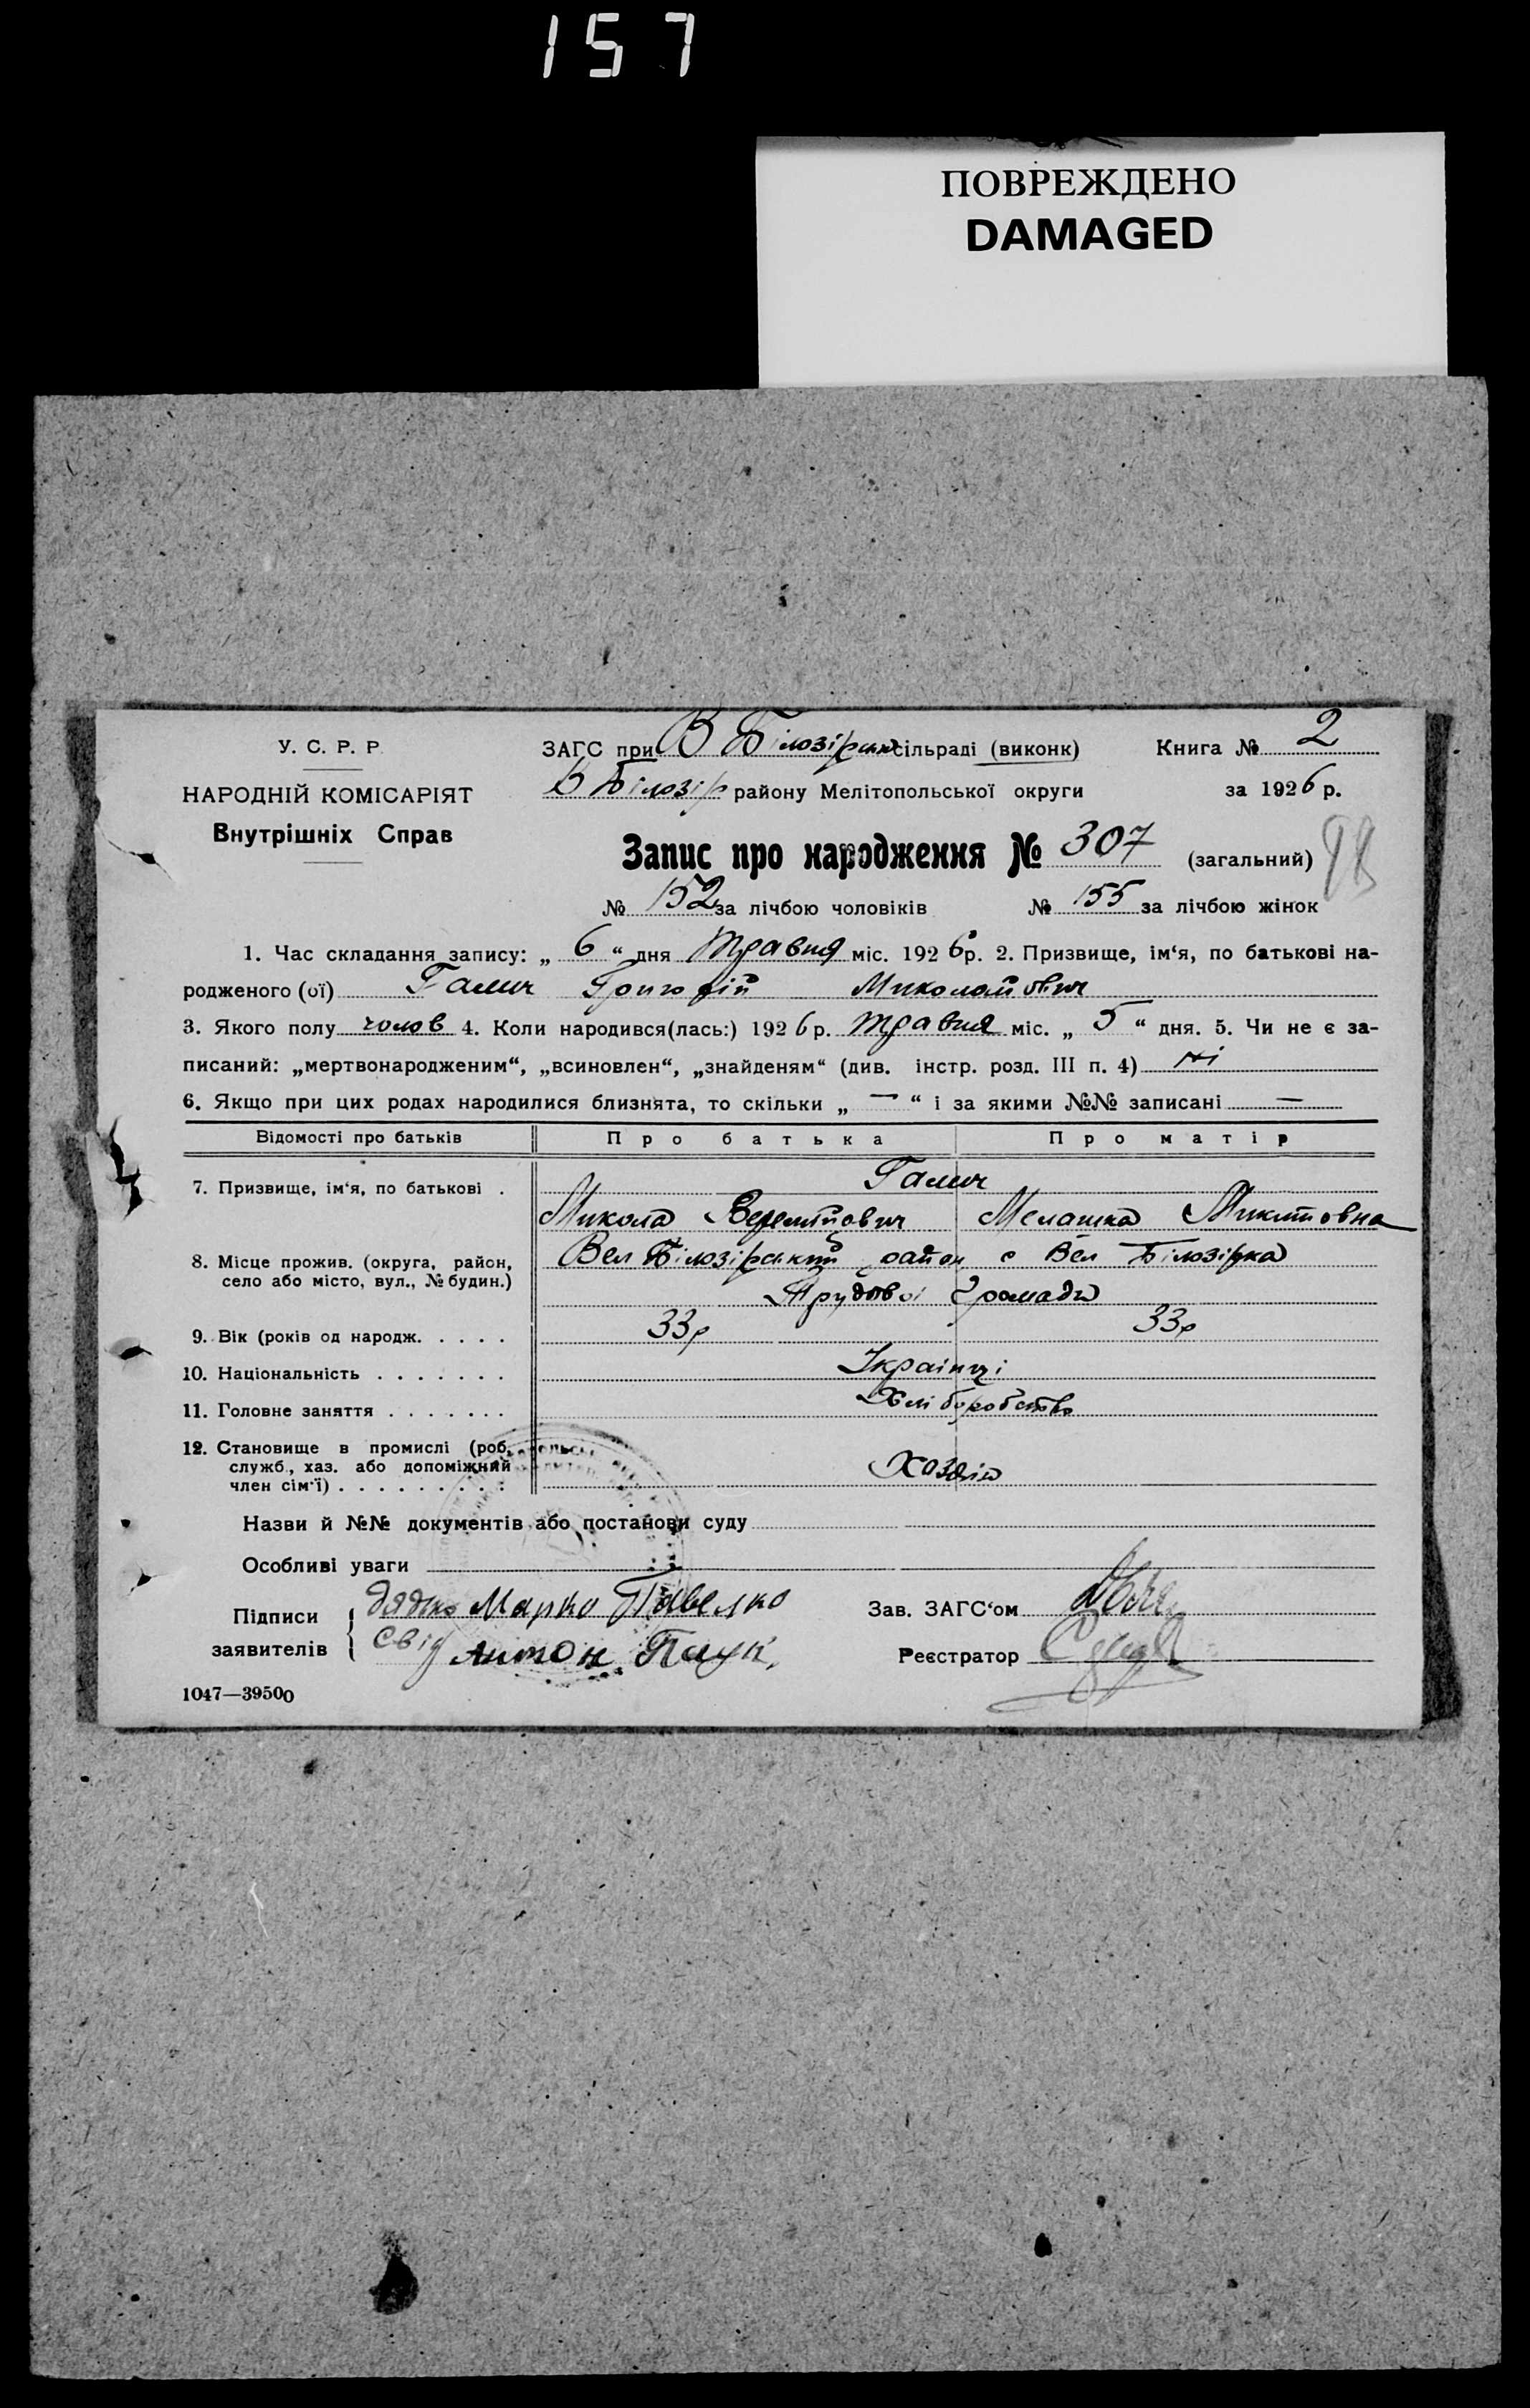 157
ПОВРЕЖДЕНО
DAMAGED
У. С. Р. Р.
НАРОДНІЙ КОМІСАРІЯТ
Внутрішніх Справ
ЗАГС при В Білозірськ сільраді (виконк) Книга № 2
В Білозір району Мелітопольської округи за 1926 р.
Запис про народження № 307 (загальний)
98
№ 152 за лічбою чоловіків № 155 за лічбою жінок
1. Час складання запису: „ 6 “ дня Травня міс. 1926 р. 2. Призвище, ім‘я, по батькові на-
родженого (ої) Галич Григорій Миколайович
3. Якого полу чолов 4. Коли народився(лась:) 1926 р. Травня міс. „ 5 “ дня. 5. Чи не є за-
писаний: „мертвонародженим“, „всиновлен“, „знайденям“ (див. інстр. розд. III п. 4) ні
6. Якщо при цих родах народилися близнята, то скільки „ — “ і за якими №№ записані —
Відомості про батьків Про батька Про матір
7. Призвище, ім‘я, по батькові . Галич
Микола Мелашка Микитовна
8. Місце прожив. (округа, район, село або місто, вул., № будин.) Вел Білозірський район с Вел Білозірка
Трудової Громади
9. Вік (років од народж. . . . . 33р 33р
10. Національність . . . . . . . Українці
11. Головне заняття . . . . . . . Хліборобство
12. Становище в промислі (роб., служб., хаз. або допоміжний член сім‘ї) . . . . . . . . . Хозяїн
Назви й №№ документів або постанови суду
Особливі уваги
Підписи заявителів { дядько Марко Павелко
Свід Антон Паук,
Зав. ЗАГС‘ом
Реєстратор
1047—39500